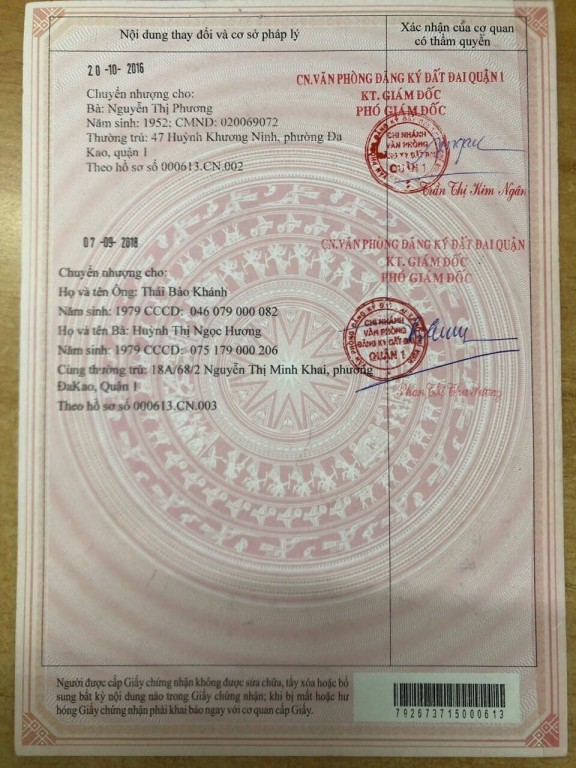 Nội dung thay đổi và cơ sở pháp lý
Xác nhận của cơ quan
có thẩm quyền
20 -10- 2016
Chuyển nhượng cho:
Bà: Nguyễn Thị Phương
Năm sinh: 1952; CMND: 020069072
Thường trú: 47 Huỳnh Khương Ninh, phường Đa
Kao, quận 1
Theo hồ sơ số 000613.CN.002
CN.VĂN PHÒNG ĐĂNG KÝ ĐẤT ĐAI QUẬN 1
KT. GIÁM ĐỐC
PHÓ GIÁM ĐỐC
CHI NHÁNH
VĂN PHÒNG
ĐĂNG KÝ ĐẤT ĐAI
QUẬN 1
Trần Thị Kim Ngân
07 -09- 2018
Chuyển nhượng cho:
Họ và tên Ông: Thái Bảo Khánh
Năm sinh: 1979 CCCD: 046 079 000 082
Họ và tên Bà: Huỳnh Thị Ngọc Hương
Năm sinh: 1979 CCCD: 075 179 000 206
Cùng thường trú: 18A/68/2 Nguyễn Thị Minh Khai, phường
ĐaKao, Quận 1
Theo hồ sơ số 000613.CN.003
CN.VĂN PHÒNG ĐĂNG KÝ ĐẤT ĐAI QUẬN
KT. GIÁM ĐỐC
PHÓ GIÁM ĐỐC
CHI NHÁNH
VĂN PHÒNG
ĐĂNG KÝ ĐẤT ĐAI
QUẬN 1
Phan Thị
Người được cấp Giấy chứng nhận không được sửa chữa, tẩy xóa hoặc bổ
sung bất kỳ nội dung nào trong Giấy chứng nhận; khi bị mất hoặc hư
hỏng Giấy chứng nhận phải khai báo ngay với cơ quan cấp Giấy.
792673715000613